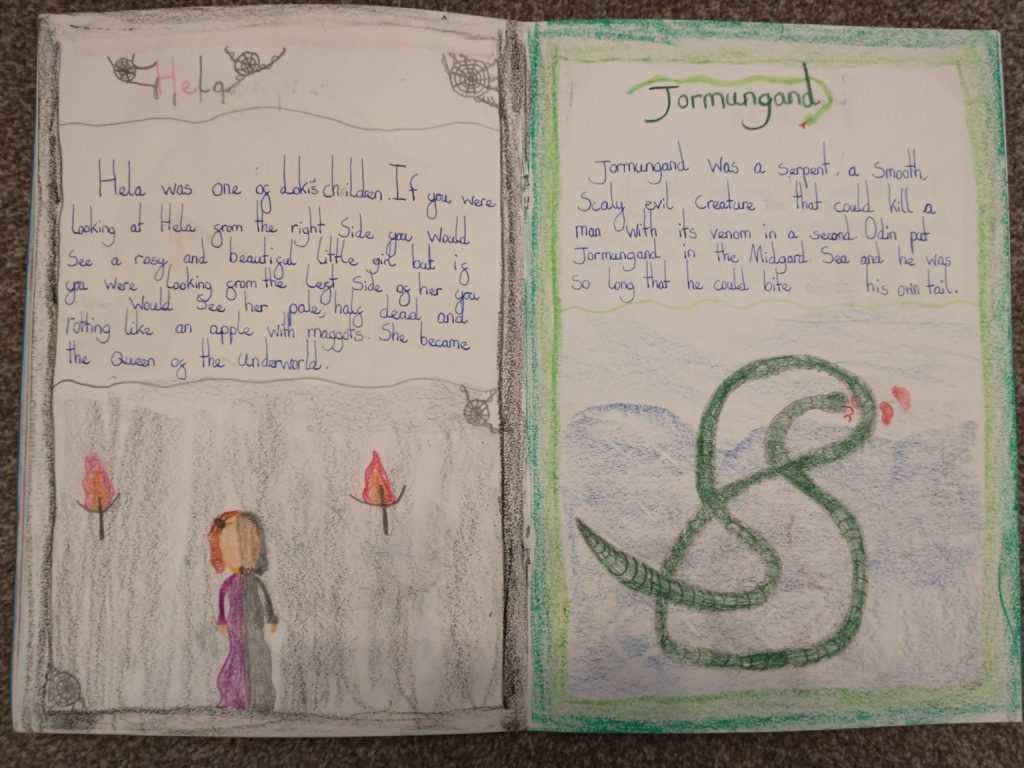 Hela
Hela was one of Loki's children. If you were
looking at Hela from the right Side you would
See a rosy and beautiful little girl but if
you were looking from the left Side of her you
would See her pale, half dead and
rotting like an apple with maggots. She became
the Queen of the Underworld.
Jormungand
Jormungand was a serpent, a smooth
Scaly evil creature that could kill a
man with its venom in a second. Odin put
Jormungand in the Midgard Sea and he was
so long that he could bite his own tail.